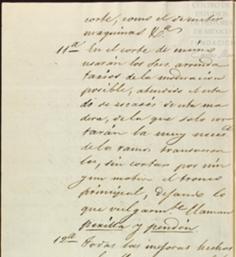 corte, como el de meter
maquinas &.ª
11ª En el corte de
usarán los Sres. arrenda
tarios de la moderacion
posible, atendido el esta
do de escasés de esta ma
dera, de la que solo cor
tarán la muy necesa
de la rama transversa
les, sin cortar por nin
gun motivo el tronco
principal, dejando lo
que vulgarmte. llaman
y pendón.
12ª Todas las mejoras hechas